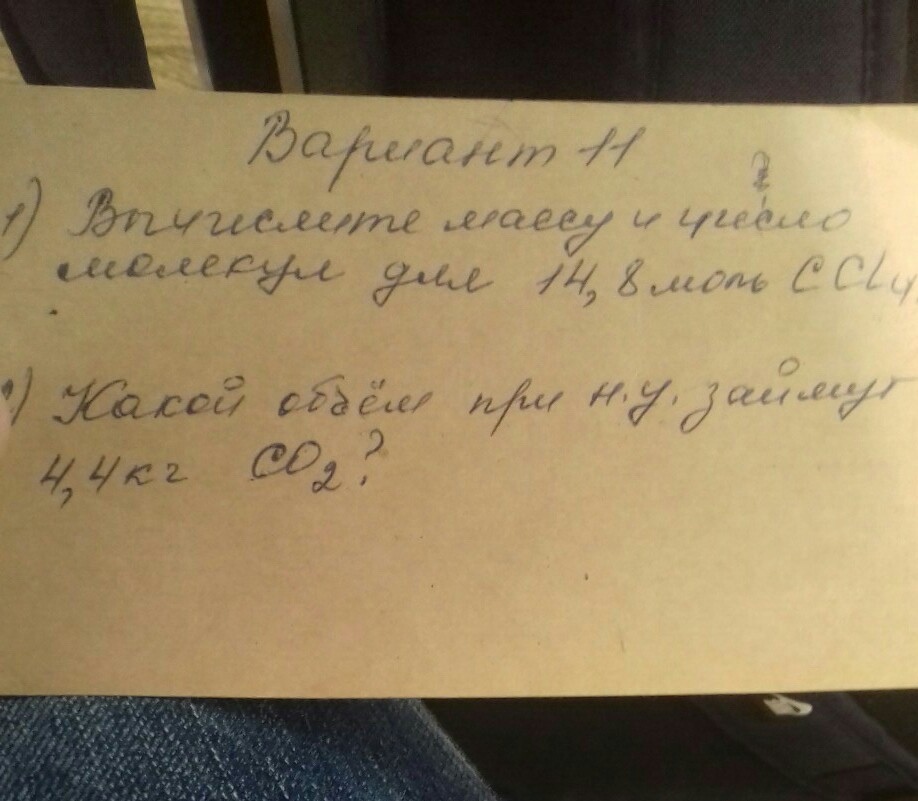 Вариант 11
1) Вычислите массу и число
молекул для 14,8 моль CCl4
) Какой объём при н.у. займут
4,4 кг CO2?